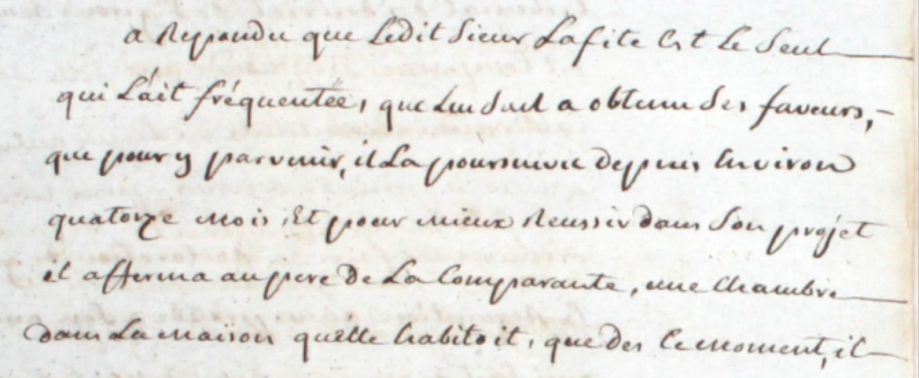 a Repondu que Ledit Sieur Lafite Est Le Seul
qui L'ait fréquentée, que Lui Seul a obtenu Ses faveurs,
que pour y parvenir, il La poursuivie depuis Environ
quatorze mois, Et pour mieux Reussir dans Son projet
il afferma au pere de La Comparante, une Chambre
dans La maison quelle habitoit, que des Le moment, il